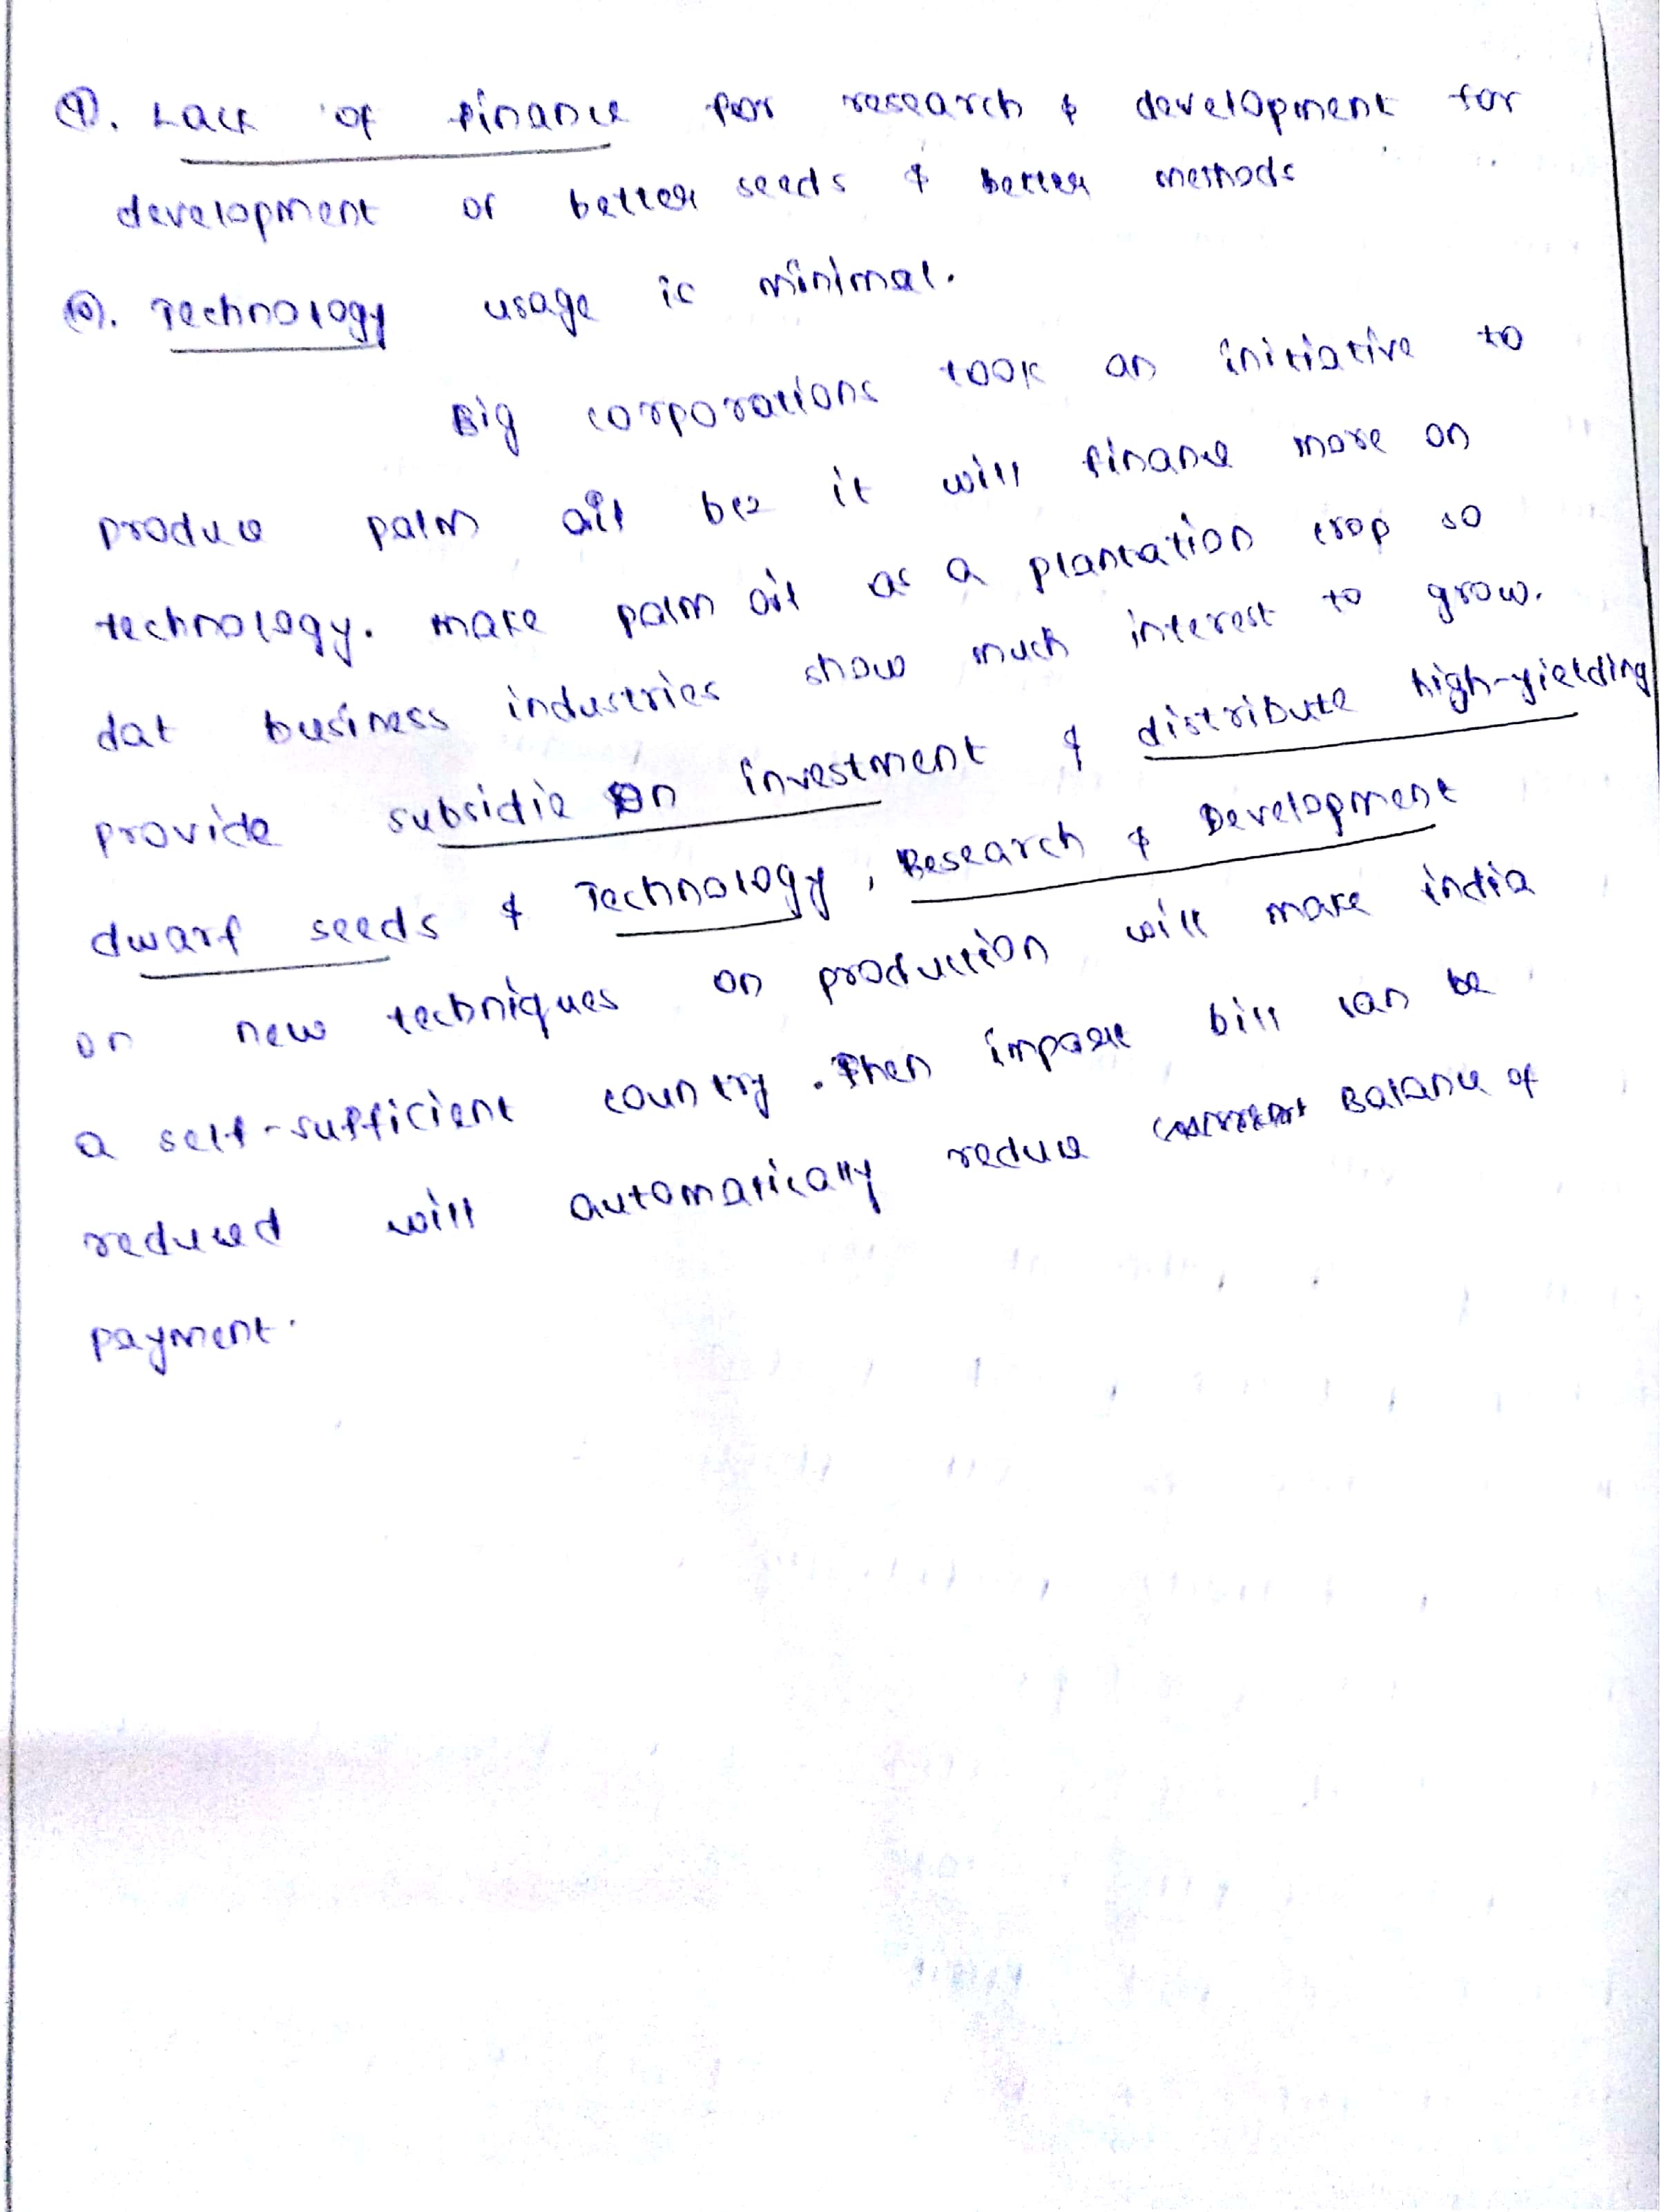 ⑨. Lack of finance for research & development for
development of better seeds & better methods
⑩. Technology usage is minimal.
Big corporations took an initiative to
produce palm oil bcz it will finance more on
technology. make palm oil as a plantation crop so
dat business industries show much interest to grow.
provide subsidie on investment & distribute high-yielding
dwarf seeds & Technology, Research & Development
on new techniques on production will make india
a self-sufficient country. Then import bill can be
reduced will automatically reduce Balance of
payment.